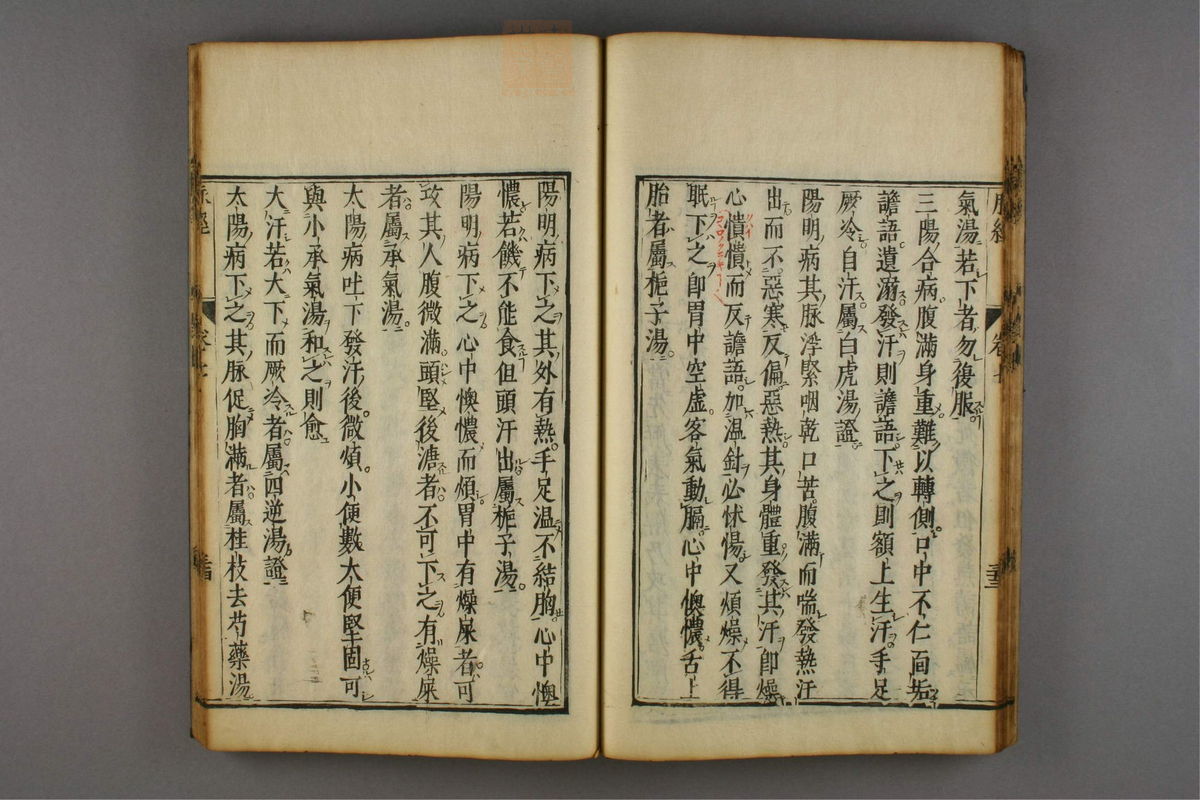 氣湯若下者勿後服
三陽合病腹滿身重難以轉側口中不仁面垢
譫語遺溺發汗則譫語下之則額上生汗手足
厥冷自汗屬白虎湯證
陽明病其脉浮緊咽乾口苦腹滿而喘發熱汗
出而不惡寒反偏惡熱其身體重發其汗即燥
心憒憒而反譫語加温針必怵惕又煩燥不得
眠下之即胃中空虛客氣動膈心中懊憹舌上
胎者屬梔子湯
陽明病下之其外有熱手足温不結胸心中懊
憹若饑不能食但頭汗出屬梔子湯
陽明病下之心中懊憹而煩胃中有燥屎者可
攻其人腹微滿頭堅後溏者不可下之有燥屎
者屬承氣湯
太陽病吐下發汗後微煩小便數大便堅固可
與小承氣湯和之則愈
大汗若大下而厥冷者屬四逆湯證
太陽病下之其脉促胸滿者屬桂枝去芍藥湯